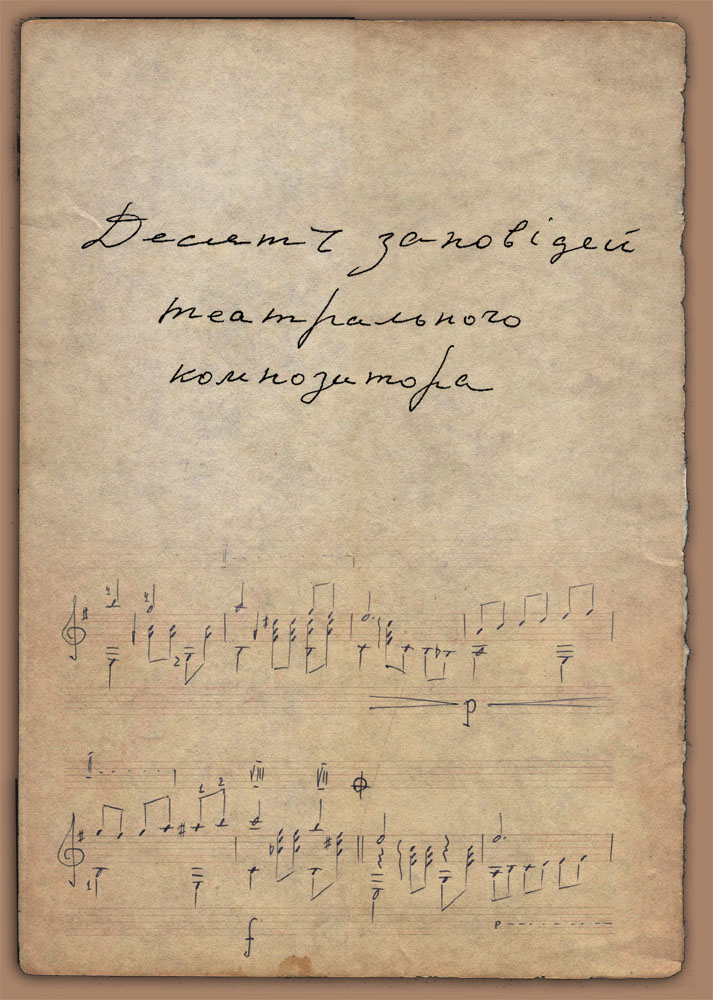 Десять заповідей
театрального
композитора
p
VIII VII
f
p